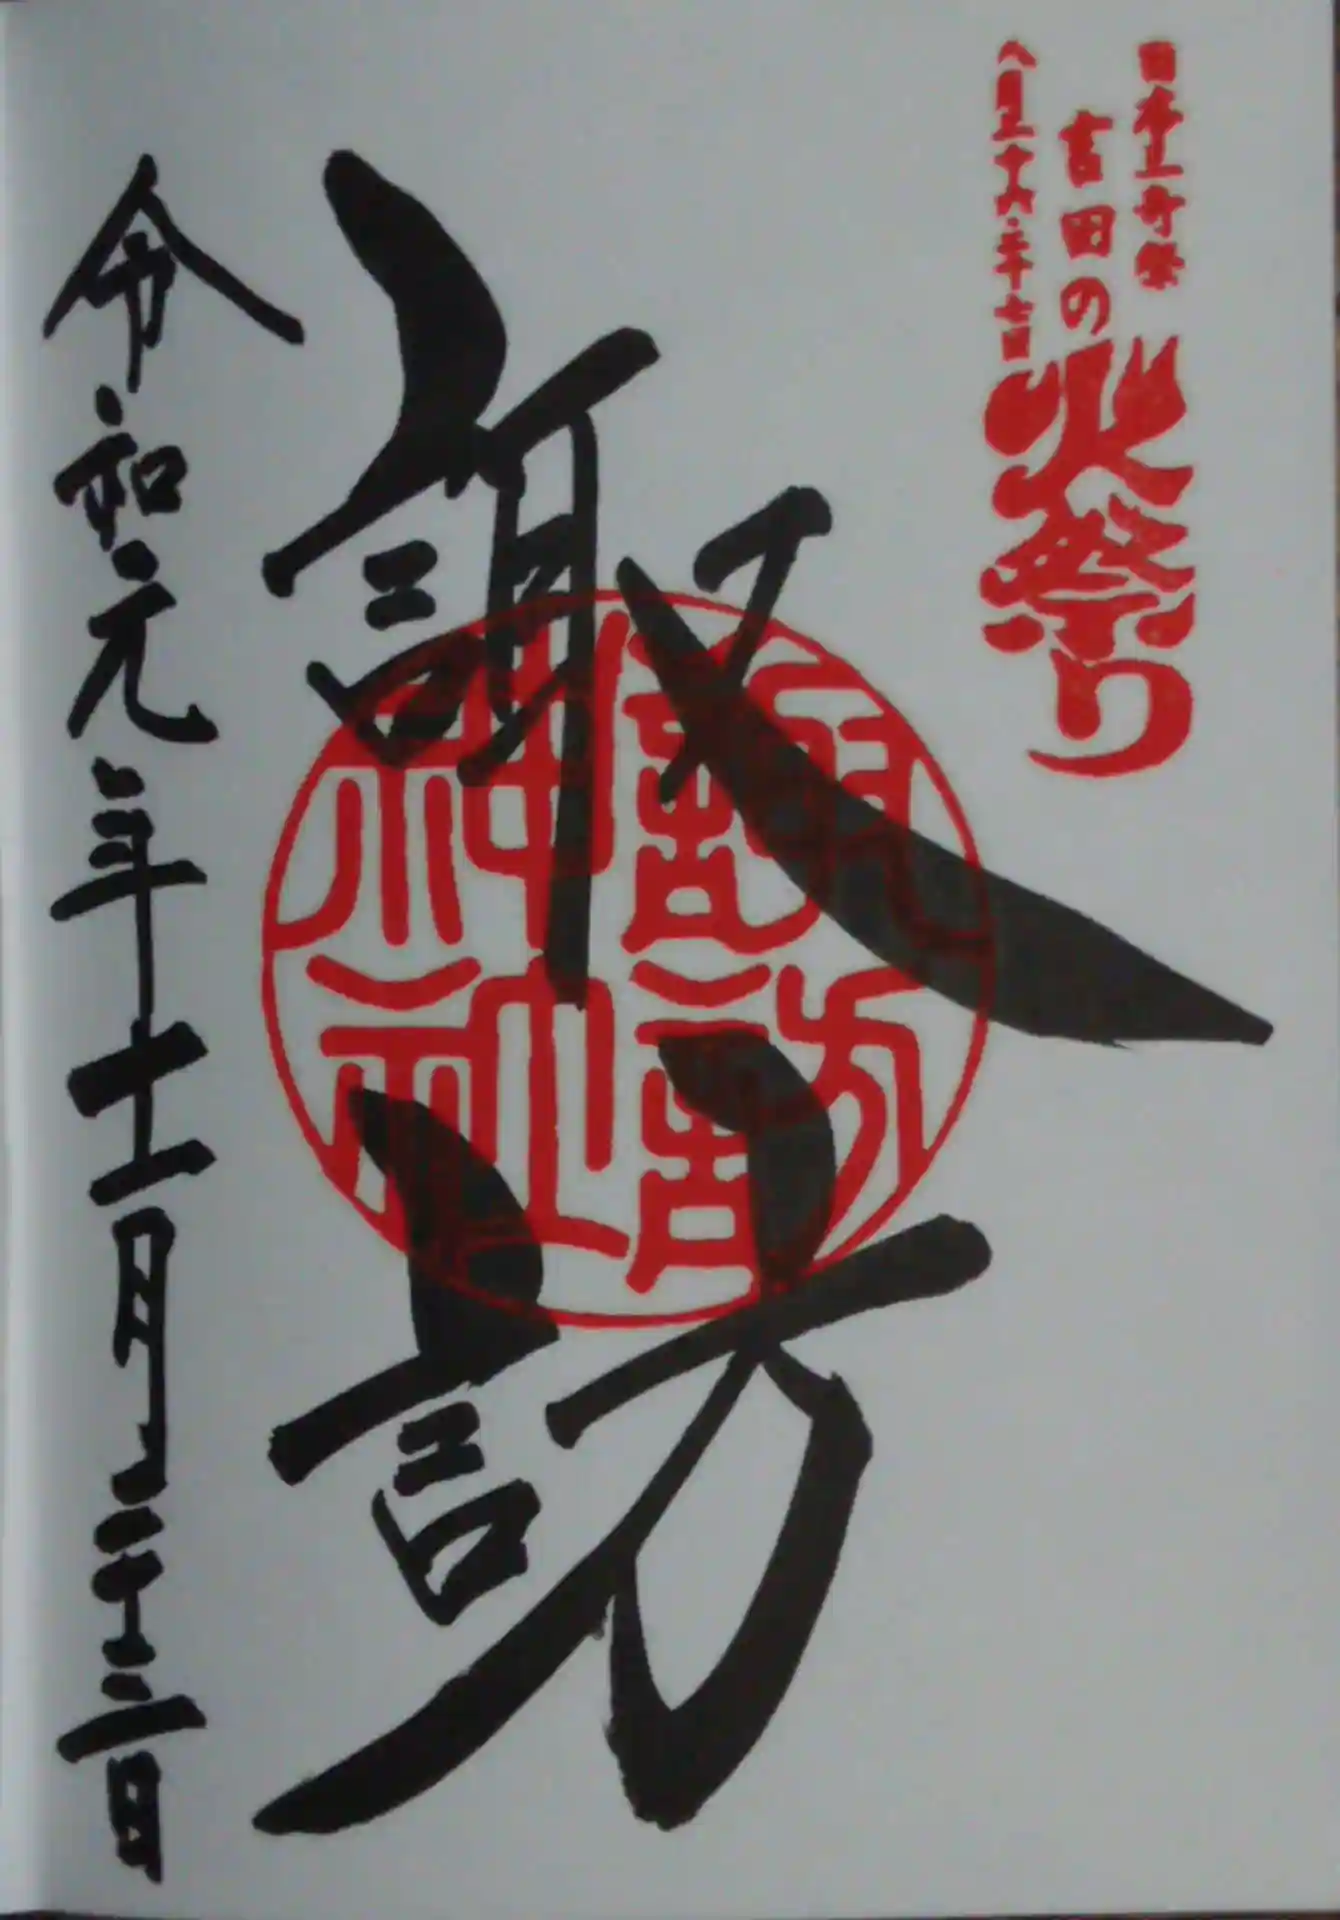 日本三奇祭
吉田の火祭り
八月二十六・二十七日
諏訪
諏訪
神社
令和元年十一月二十三日